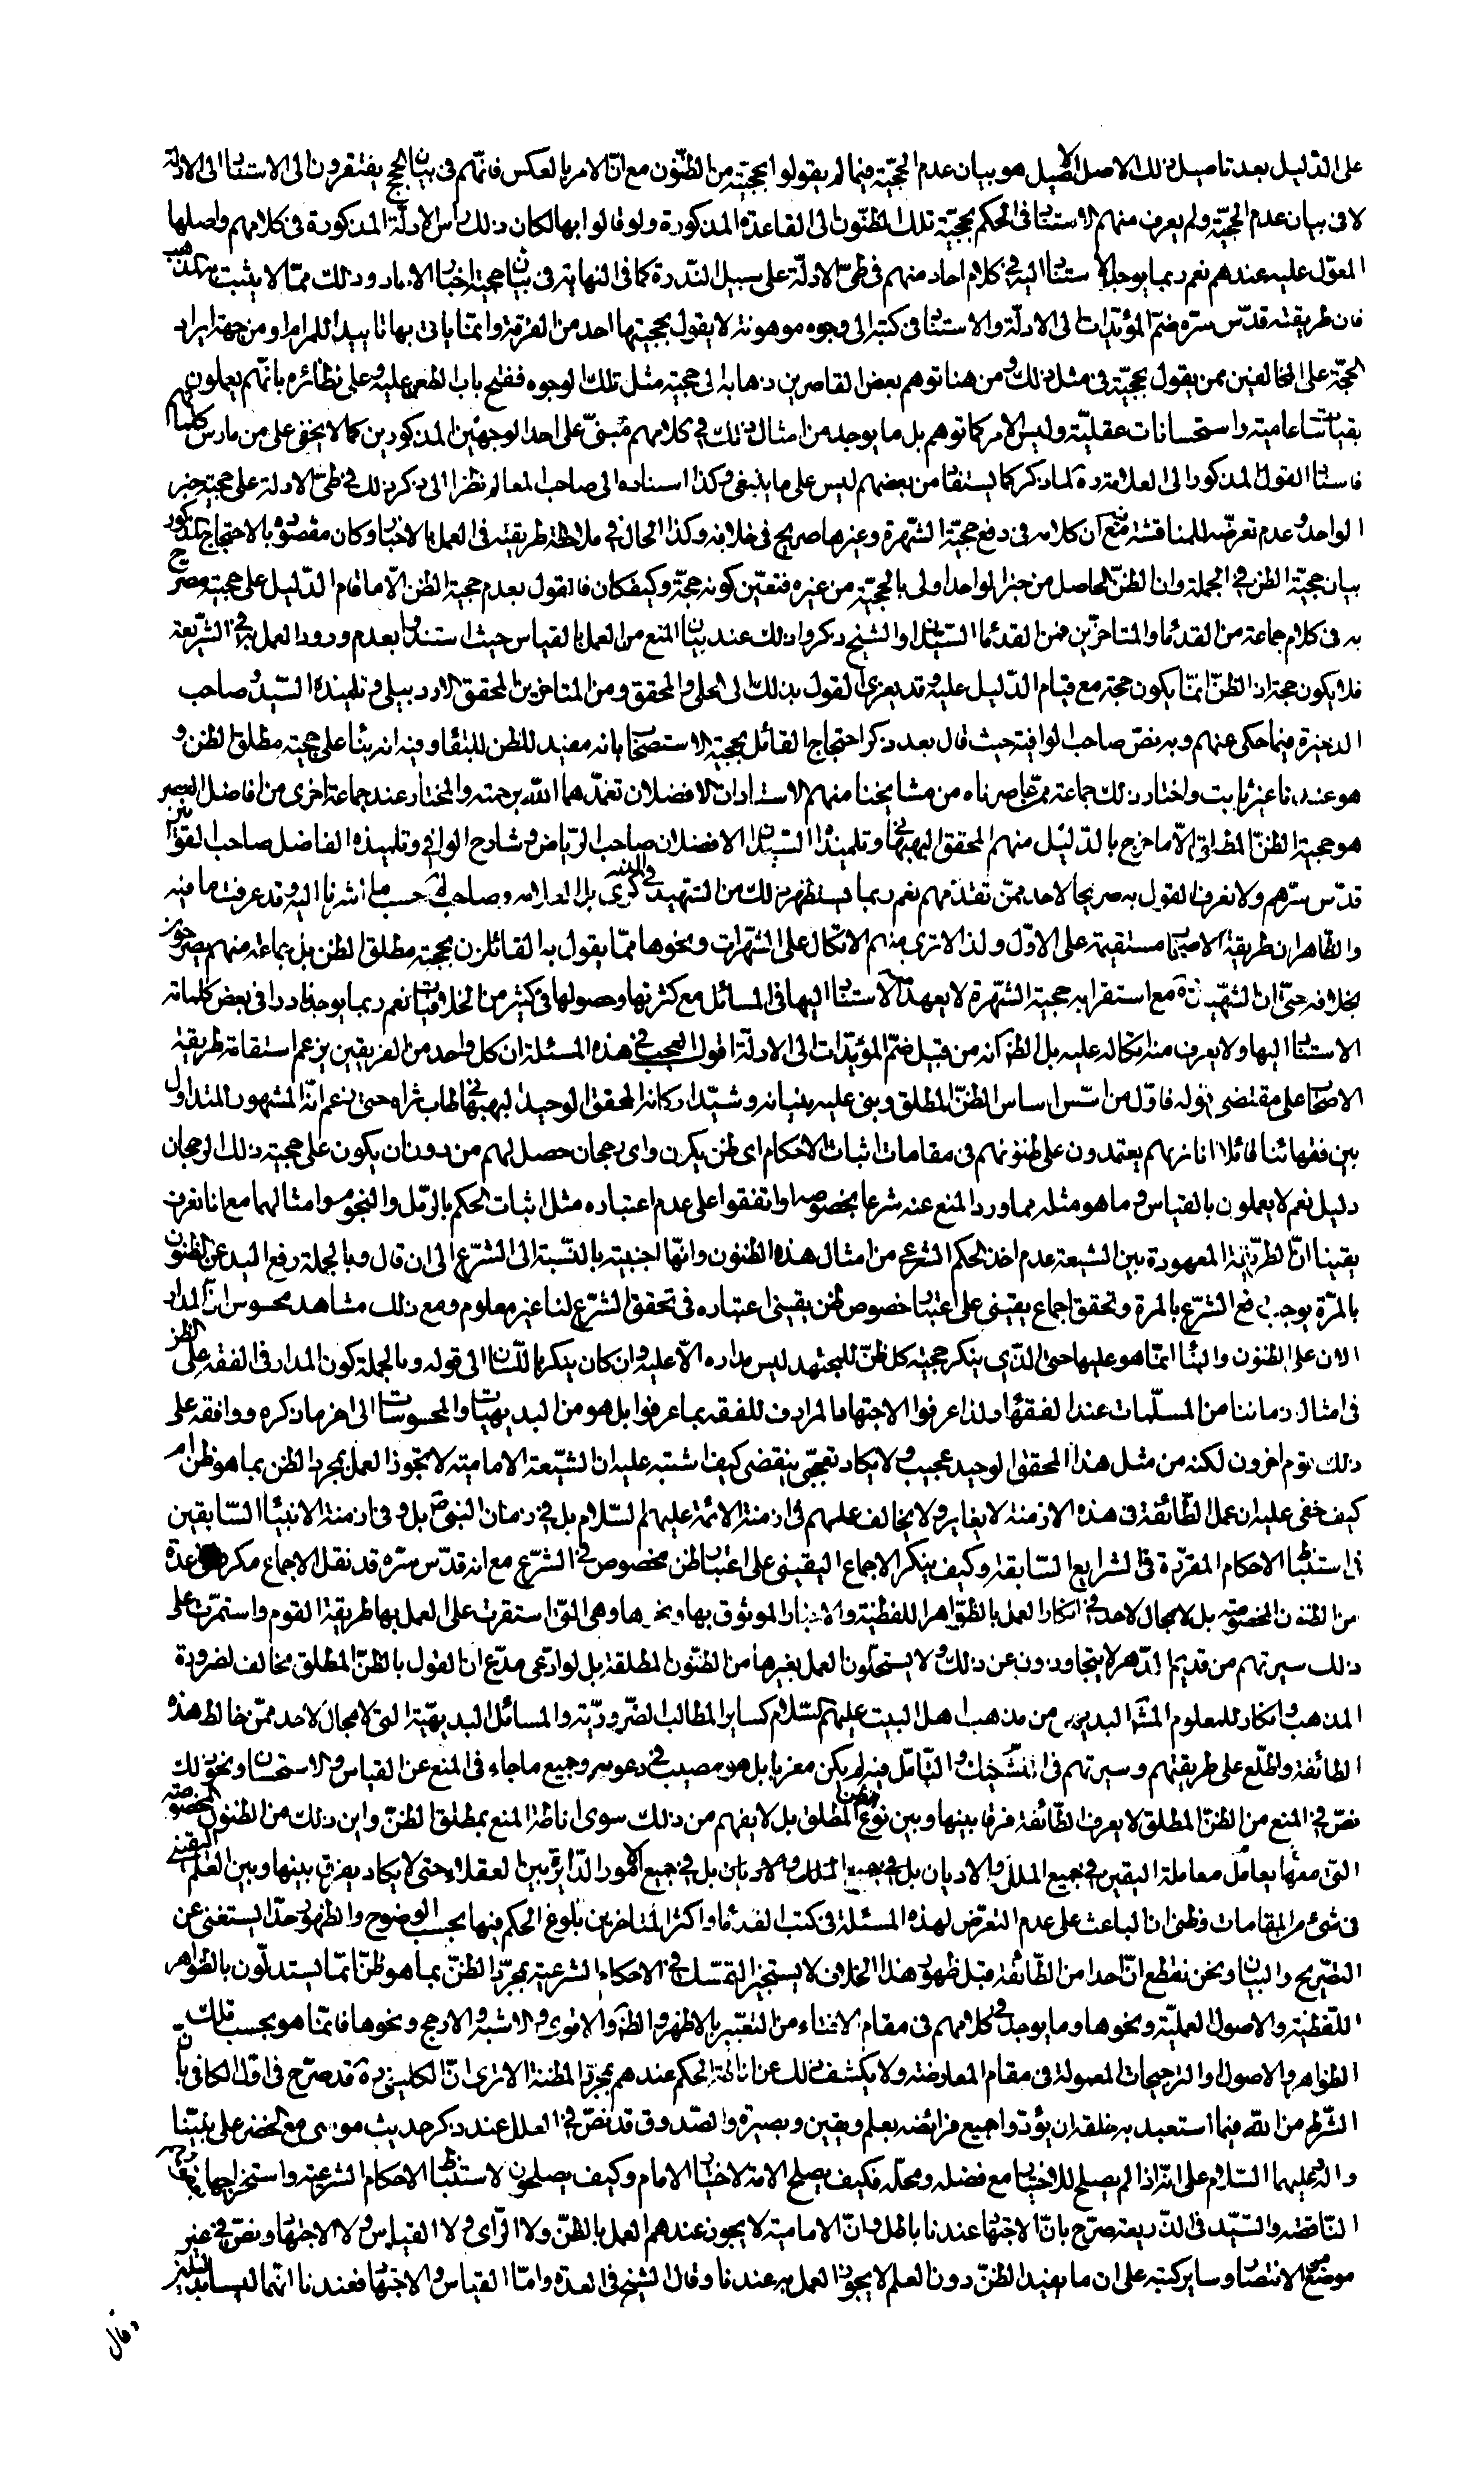 على الدليل بعد تاصيل ذلك الاصل الاصيل هو بيان عدم الحجية فيما لم يقولوا بحجيته من الظنون مع ان الامر بالعكس فانهم فى بيان الحجج يفتقرون الى الاستناد الى الادلة
لا فى بيان عدم الحجية ولم يعرف منهم الاستناد فى الحكم بحجية تلك الظنون الى القاعدة المذكورة ولو قالوا بها لكان ذلك راس الادلة المذكورة فى كلامهم واصلها
المعول عليه عندهم نعم ربما يوجد الاستناد اليه فى كلام احاد منهم فى طى الادلة على سبيل الندرة كما فى النهاية فى بيان حجية اخبار الاحاد وذلك مما لا يثبت به المذهب
فان طريقته قدس سره ضم المؤيدات الى الادلة والاستناد فى كتبه الى وجوه موهونة لا يقول بحجيتها احد من الفرقة وانما ياتى بها تاييدا للمرام او من جهة ايراد
الحجة على المخالفين ممن يقول بحجيته فى مثل ذلك ومن هنا توهم بعض القاصرين ذهابه الى حجية مثل تلك الوجوه ففتح باب الطعن عليه وعلى نظائره بانهم يعملون
بقياسات عامية واستحسانات عقلية وليس الامر كما توهم بل ما يوجد من امثال ذلك فى كلامهم مبنى على احد الوجهين المذكورين كما لا يخفى على من مارس كلماتهم
فاسناد القول المذكور الى العلامة ره لما ذكر كما يستفاد من بعضهم ليس على ما ينبغى وكذا اسناده الى صاحب المعالم نظرا الى ذكر ذلك فى طى الادلة على حجية خبر
الواحد وعدم تعرضه للمناقشة فيه مع ان كلامه فى دفع حجية الشهرة وغيرها صريح فى خلافه وكذا الحال فى ملاحظة طريقته فى العمل بالاخبار وكان مقصوده بالاحتجاج المذكور
بيان حجية الظن فى الجملة وان الظن الحاصل من خبر الواحد اولى بالحجية من غيره فتعين كونه حجة وكيف كان فالقول بعدم حجية الظن الا ما قام الدليل على حجيته مصرح
به فى كلام جماعة من القدماء والمتاخرين فمن القدماء السيدان والشيخ ذكروا ذلك عند بيان المنع من العمل بالقياس حيث استندوا بعدم ورود العمل به فى الشريعة
فلا يكون حجة اذ الظن انما يكون حجة مع قيام الدليل عليه وقد يعزى القول بذلك الى الحلى والمحقق ومن المتاخرين المحقق الاردبيلى وتلميذه السيد وصاحب
الذخيرة فيما حكى عنهم وبه نص صاحب الوافية حيث قال بعد ذكر احتجاج القائل بحجية الاستصحاب بانه مفيد للظن للبقاء وفيه انه بناء على حجية مطلق الظن و
هو عندنا غير ثابت واختار ذلك جماعة ممن عاصرناه من مشايخنا منهم الاستادان الافضلان تغمدهما الله برحمته والمختار عند جماعة اخرى من افاضل العصر
هو حجية الظن المطلق الا ما خرج بالدليل منهم المحقق البهبهانى وتلميذاه السيدان الافضلان صاحب الرياض وشارح الوافى وتلميذه الفاضل صاحب القوانين
قدس سرهم ولا نعرف القول به صريحا لاحد ممن تقدمهم نعم ربما يستظهر ذلك من الشهيد فى الذكرى والعلامة وصاحب لم حسب ما اشرنا اليه وقد عرفت ما فيه
والظاهر ان طريقة الاصحاب مستقيمة على الاول ولذا لا ترى منهم الاتكال على الشهرات ونحوها مما يقول به القائلون بحجية مطلق الظن بل جماعة منهم يصرحون
بخلافه حتى ان الشهيد ره مع استقرابه حجية الشهرة لا يعهد منه الاستناد اليها فى المسائل مع كثرتها وحصولها فى كثير من الخلافيات نعم ربما يوجد نادرا فى بعض كلماته
الاستناد اليها ولا يعرف منه اتكاله عليه بل الظ انه من قبيل ضم المؤيدات الى الادلة اقول العجب فى هذه المسئلة ان كل واحد من الفريقين يزعم استقامة طريقة
الاصحاب على مقتضى قوله فاول من اسس اساس الظن المطلق وبنى عليه بنيانه وشيد اركانه المحقق الوحيد البهبهانى طاب ثراه حتى زعم انه المشهور المتداول
بين فقهائنا قائلا انا نريهم يعتمدون على ظنونهم فى مقامات اثبات الاحكام اى ظن يكون واى رجحان حصل لهم من دون ان يكون على حجية ذلك الرجحان
دليل نعم لا يعملون بالقياس وما هو مثله مما ورد المنع عنه شرعا بخصوصه او اتفقوا على عدم اعتباره مثل اثبات الحكم بالرمل والنجوم وامثالهما مع انا نعرف
يقينا ان الطريقة المعهودة بين الشيعة عدم اخذ الحكم الشرعى من امثال هذه الظنون وانها اجنبية بالنسبة الى الشرع الى ان قال وبالجملة رفع اليد عن الظنون
بالمرة يوجب رفع الشرع بالمرة وتحقق اجماع يقينى على اعتبار خصوص ظن يقينى اعتباره فى تحقق الشرع لنا غير معلوم ومع ذلك مشاهد محسوس ان المدار
الان على الظنون والبناء انما هو عليها حتى الذى ينكر حجية كل ظن للمجتهد ليس مداره الا عليه وان كان ينكر باللسان الى قوله وبالجملة كون المدار فى الفقه على الظن
فى امثال زماننا من المسلمات عند الفقهاء ولذا عرفوا الاجتهاد المرادف للفقه بما عرفوا بل هو من البديهيات والمحسوسات الى اخر ما ذكره ووافقه على
ذلك قوم اخرون لكنه من مثل هذا المحقق الوحيد عجيب ولا يكاد تعجبى ينقضى كيف اشتبه عليه ان الشيعة الامامية لا يتجوز العمل بمجرد الظن بما هو ظن ام
كيف خفى عليه ان عمل الطائفة فى هذه الازمنة لا يغاير ولا يخالف عملهم فى ازمنة الائمة عليهم السلام بل فى زمان النبى ص بل وفى ازمنة الانبياء السابقين
فى استنباط الاحكام المقررة فى الشرايع السابقة وكيف ينكر الاجماع اليقينى على اعتبار ظن مخصوص فى الشرع مع انه قدس سره قد نقل الاجماع مكررا على عدة
من الظنون المخصوصة بل لا مجال لاحد فى انكار العمل بالظواهر اللفظية والاخبار الموثوق بها ونحوها وهى التى استقرت على العمل بها طريقة القوم واستمرت على
ذلك سيرتهم من قديم الدهر لا يتجاوزون عن ذلك ولا يستحلون العمل بغيرها من الظنون المطلقة بل لو ادعى مدع ان القول بالظن المطلق مخالف لضرورة
المذهب وانكار للمعلوم البديهى من مذهب اهل البيت عليهم السلام كساير المطالب الضرورية والمسائل البديهية التى لا مجال لاحد ممن خالط هذه
الطائفة واطلع على طريقتهم وسيرتهم فى التشكيك والتامل فيه لم يكن مغربا بل هو مصيب فى دعويه وجميع ما جاء فى المنع عن القياس والاستحسان ونحو ذلك
نص فى المنع من الظن المطلق لا يعرف الطائفة فرقا بينها وبين نوع الظن المطلق بل لا يفهم من ذلك سوى اناطة المنع بمطلق الظن واين ذلك من الظنون المخصوصة
التى معها يعامل معاملة اليقين فى جميع الملل والاديان بل فى جميع الملل والاديان بل فى جميع الامور الدائرة بين العقلاء حتى لا يكاد يفرق بينها وبين العلم اليقينى
فى شئ من المقامات وظنى ان الباعث على عدم التعرض لهذه المسئلة فى كتب القدماء واكثر المتاخرين بلوغ الحكم فيها بحسب الوضوح والظهور حدا يستغنى عن
التصريح والبيان ونحن نقطع ان احدا من الطائفة قبل ظهور هذا الخلاف لا يستجيز التمسك فى الاحكام الشرعية بمجرد الظن بما هو ظن انما يستدلون بالظواهر
اللفظية والاصول العملية ونحوها وما يوجد فى كلامهم فى مقام الافتاء من التعبير بالاظهر والظ والاقوى والاشبه والارجح ونحوها فانما هو بحسب تلك
الظواهر والاصول والترجيحات المعمولة فى مقام المعارضة ولا يكشف ذلك عن اناطة الحكم عندهم بمجرد المظنة الا ترى ان الكلينى ره قد صرح فى اول الكافى بان
الشرط من الله فيما استعبد به خلقه ان يؤدوا جميع فرائضه بعلم ويقين وبصيرة والصدوق قد نص فى العلل عند ذكر حديث موسى مع الخضر على نبينا
واله وعليهما السلام على انه اذا لم يصلح للاختيار مع فضله ومحله فكيف يصلح الامة لاختيار الامام وكيف يصلحون لاستنباط الاحكام الشرعية واستخراجها بعقولهم
الناقصة والسيد فى الذريعة صرح بان الاجتهاد عندنا باطل وان الامامية لا يجوز عندهم العمل بالظن ولا الراى ولا القياس ولا الاجتهاد ونص فى غير
موضع من الانتصار وساير كتبه على ان ما يفيد الظن دون العلم لا يجوز العمل به عندنا وقال الشيخ فى العدة واما القياس والاجتهاد فعندنا انهما ليسا بدليلين
وقال